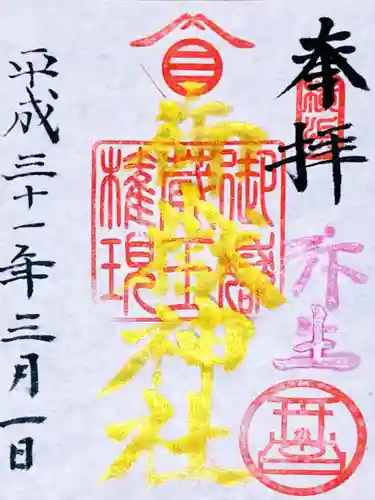 奉拝
弥生
御嶽
蔵王
權現
神社
平成三十一年三月一日